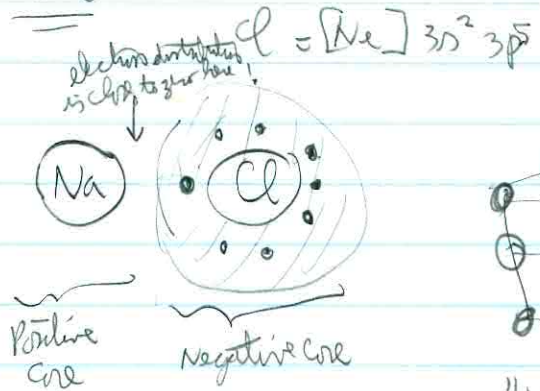 Cl = [Ne] 3s² 3p⁵
electron distribution
is close to zero here!
Na
Cl
Positive
Core
Negative Core